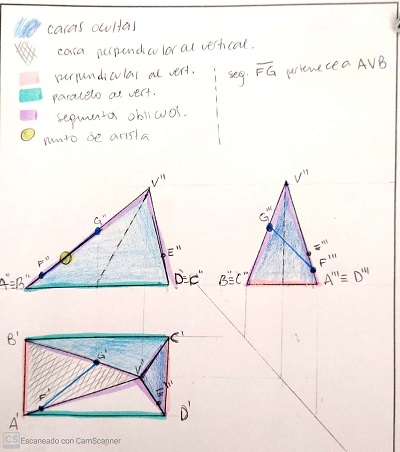 caras ocultas
cara perpendicular al vertical.
perpendicular al vert.
paralelo al vert.
segmentos oblicuos.
punto de arista
seg. FG pertenece a AVB
V''
G''
F''
E''
A''≡B''
D''≡C''
V'''
G'''
E'''
F'''
B'''≡C'''
A'''≡D'''
B'
C'
G'
V'
F'
E'
A'
D'
CS Escaneado con CamScanner